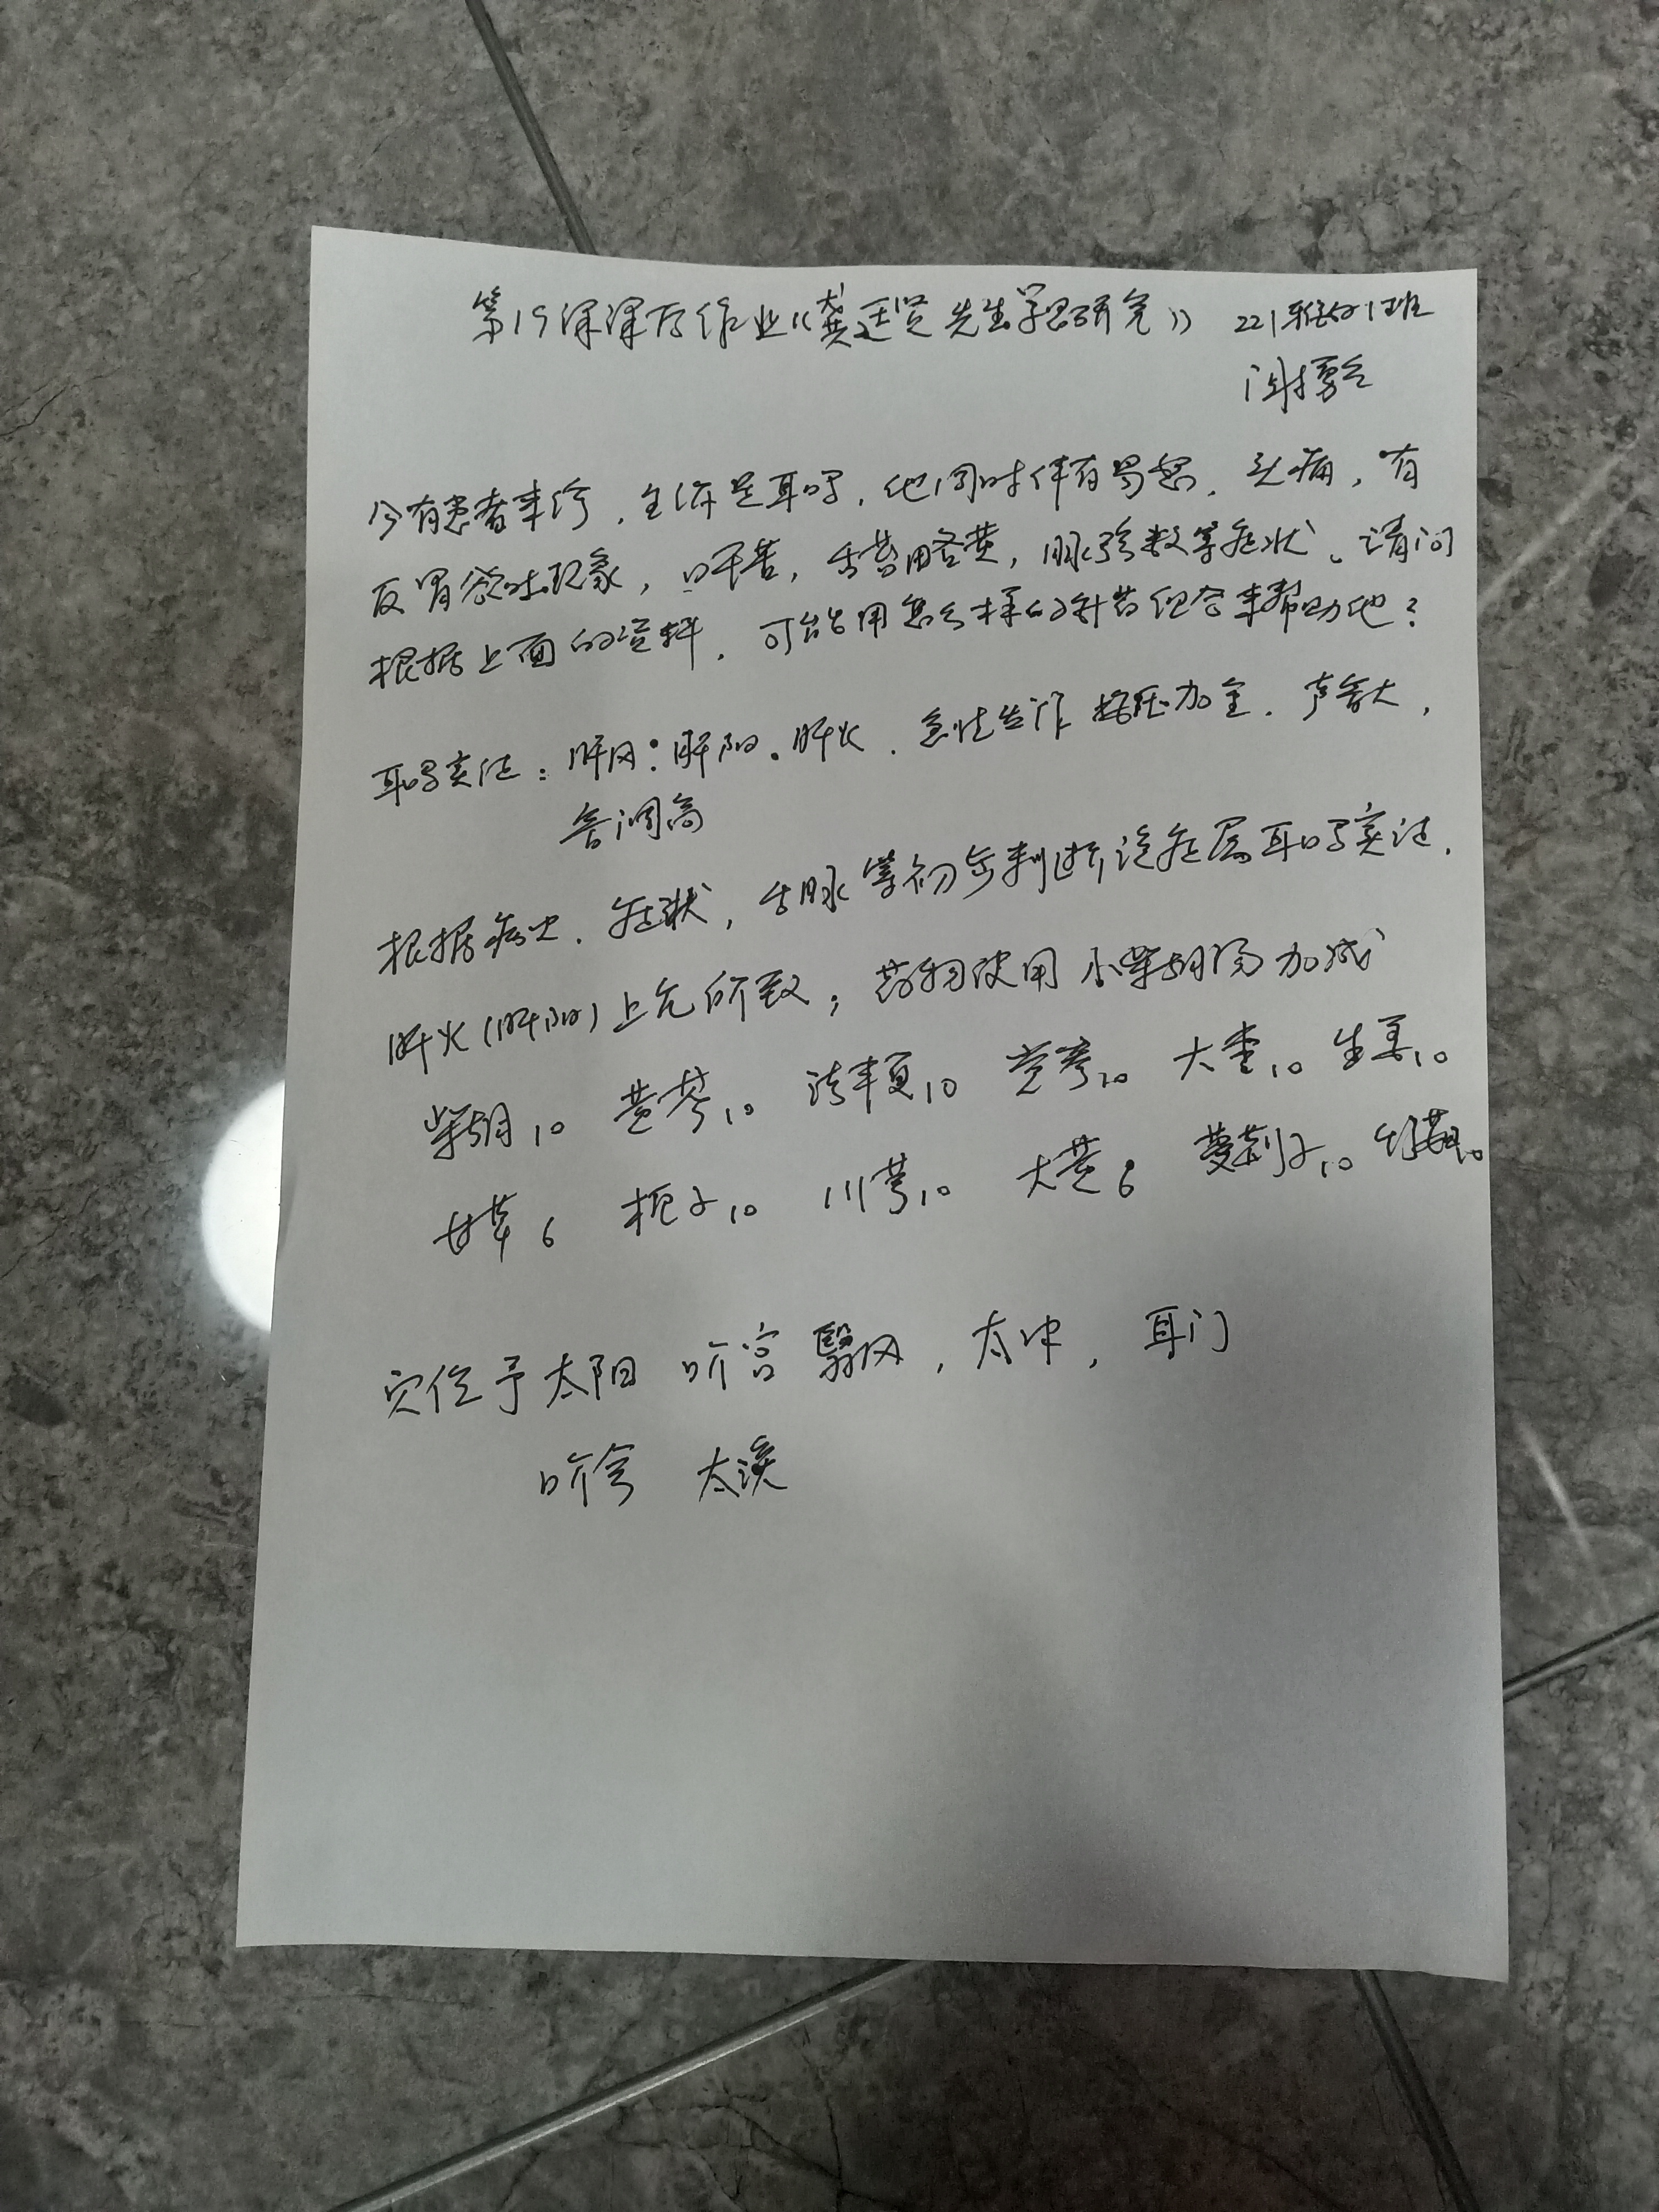 第19课课后作业《龚廷贤先生学思研究》 221班
今有患者来诊,主诉是耳鸣,他同时伴有易怒,头痛,有
反胃欲吐现象,口干苦,舌苔略黄,脉弦数等症状。请问
根据上面的资料,可能用怎么样的针药组合来帮助他?
耳鸣实证:肝风:肝阳。肝火.急性发作 按压加重.声音大,
音调高
根据病史.症状,舌脉等初步判断该症属耳鸣实证.
肝火(肝阳)上亢所致;药物使用小柴胡汤加减
柴胡10 黄芩10 法半夏10 党参10 大枣10 生姜10
甘草6 栀子10 川芎10 大黄6 蔓荆子10
穴位予太阳 听宫 翳风,太冲,耳门
听会 太溪